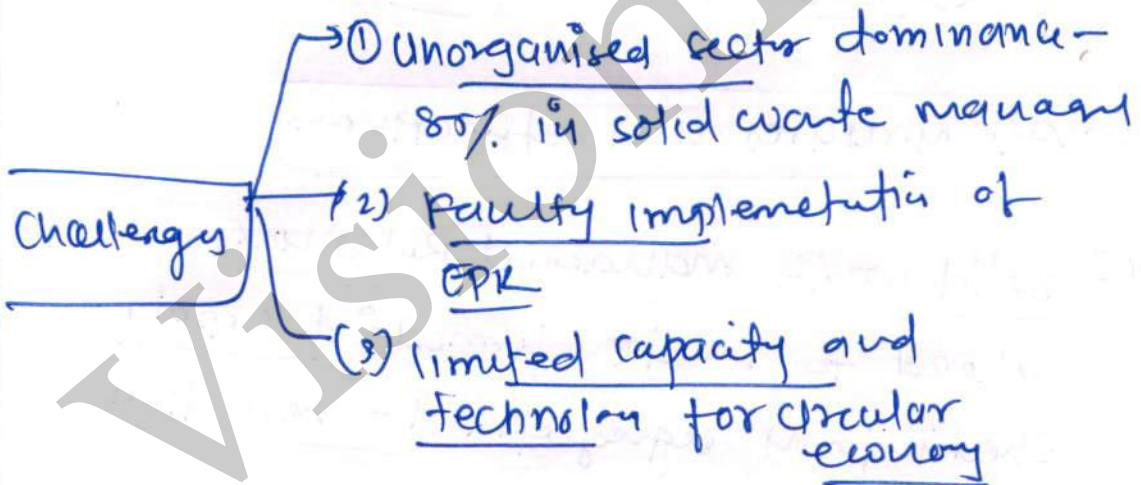 ① Unorganised sector dominance -
80% in solid waste managem
Challenges
(2) Faulty implemetation of
EPR
(3) limited capacity and
technology for circular
economy
Vision